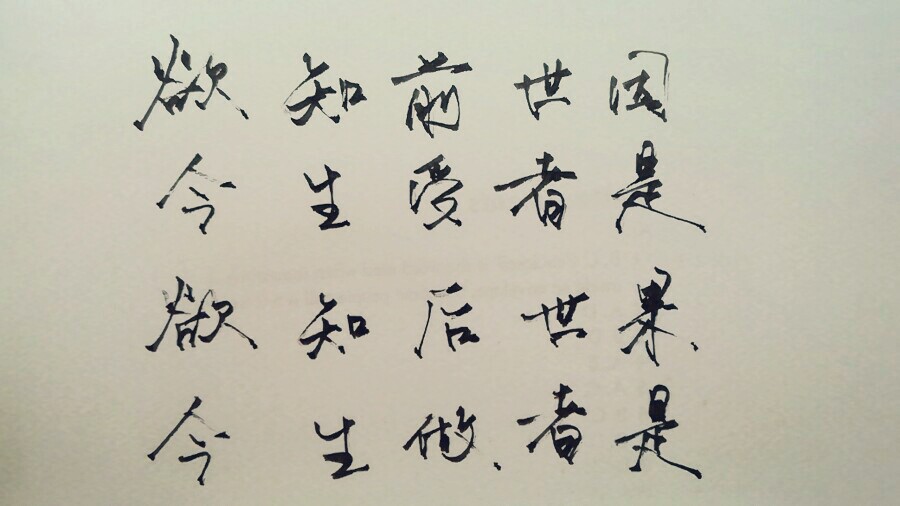 欲知前世因
今生受者是
欲知后世果
今生做者是